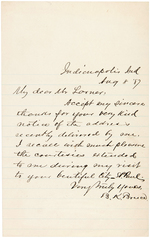 Indianapolis Ind
Aug 8 87
My dear Mr
Accept my sincere
thanks for your very kind
notice of the address
recently delivered by me.
I recall with much pleasure
the courtesies extended
to me during my visit
to your beautiful City
Very truly yours,